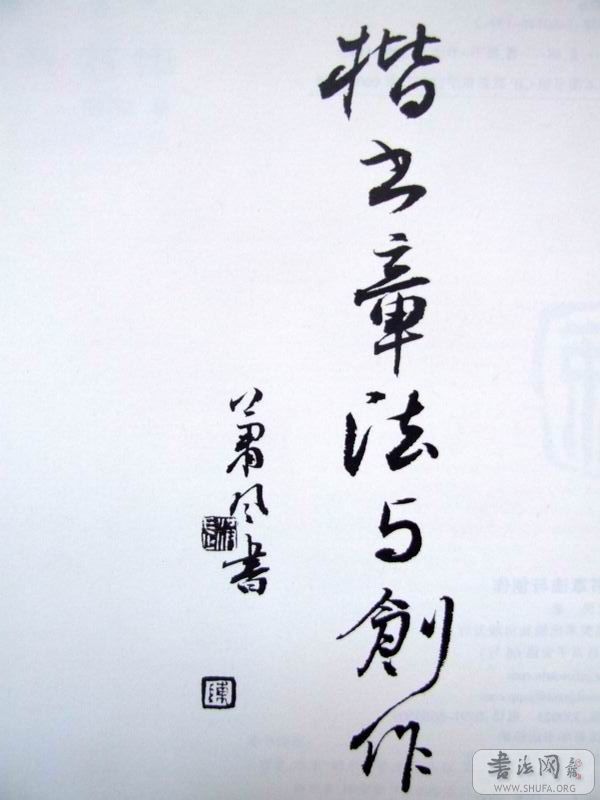 楷书章法与創作
萧风书
陳
书法网
WWW.SHUFA.ORG